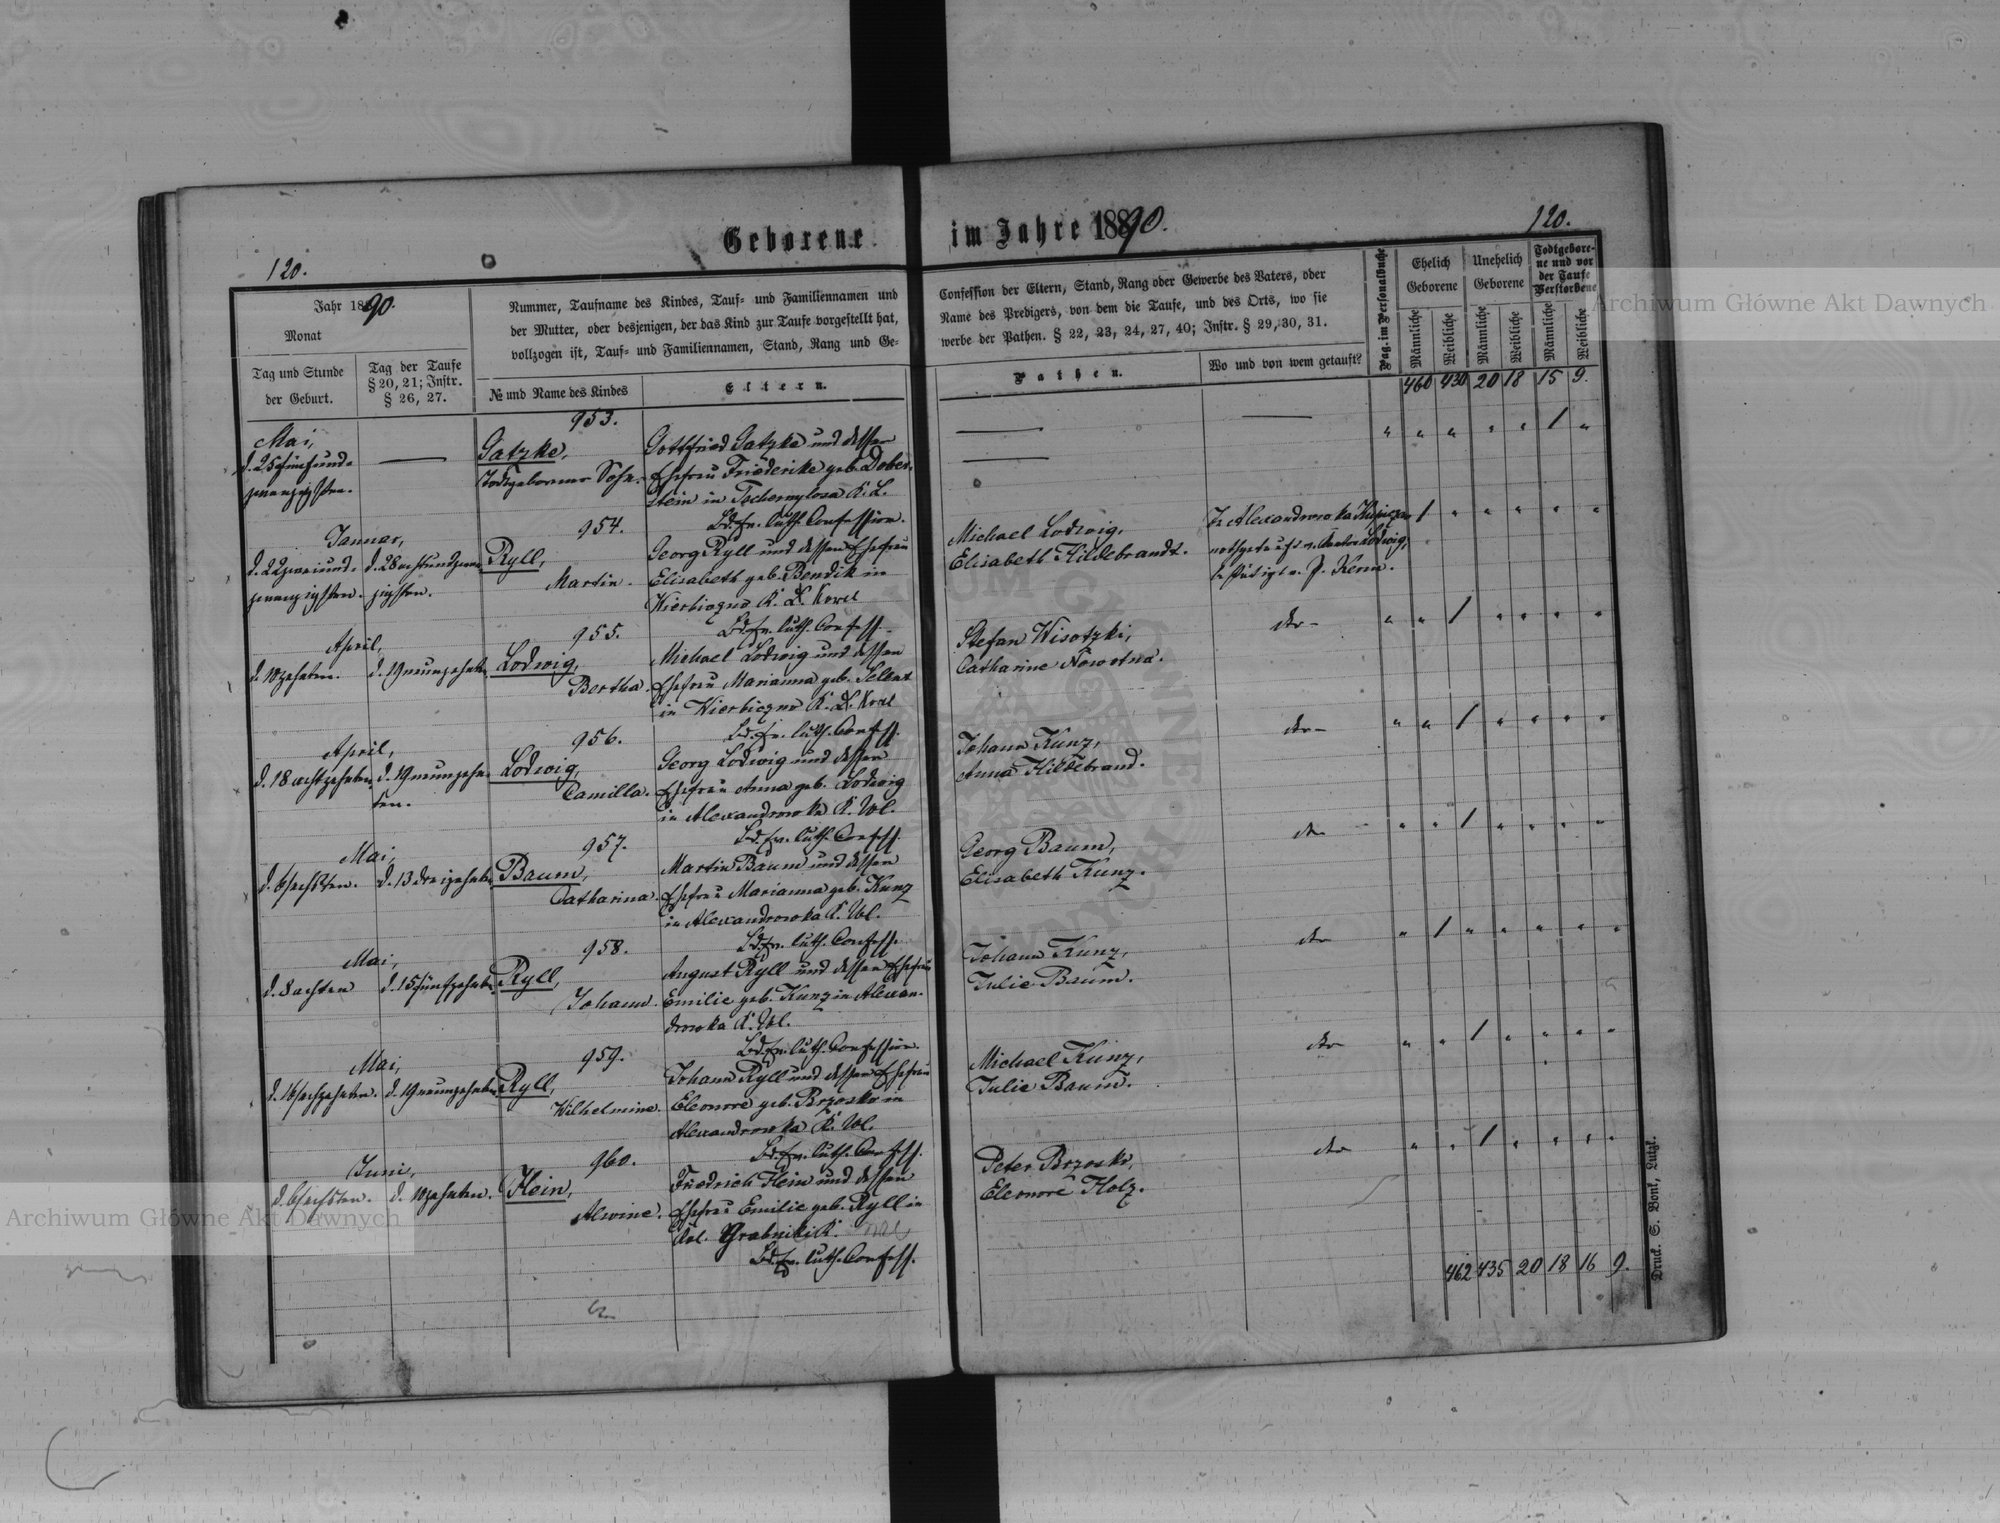 Geborene im Jahre 1890.
120.
120.
Jahr 1890.
Monat
Tag und Stunde
der Geburt.
Tag der Taufe
§ 20, 21; Instr.
§ 26, 27.
Nummer, Taufname des Kindes, Tauf- und Familiennamen und
der Mutter, oder desjenigen, der das Kind zur Taufe vorgestellt hat,
vollzogen ist, Tauf- und Familiennamen, Stand, Rang und Ge-
№ und Name des Kindes
Eltern.
Confession der Eltern, Stand, Rang oder Gewerbe des Vaters, oder
Name des Predigers, von dem die Taufe, und des Orts, wo sie
werbe der Pathen. § 22, 23, 24, 27, 40; Instr. § 29, 30, 31.
Pathen.
Wo und von wem getauft?
Pag. im Personalbuche
Ehelich
Geborene
Unehelich
Geborene
Todtgebore-
ne und vor
der Taufe
Verstorbene
Männliche
Weibliche
Männliche
Weibliche
Männliche
Weibliche
460 430 20 18 15 9.
953.
Mai,
d. 25 fünfund-
zwanzigsten.
Gatzke,
todtgeborener Sohn.
Gottfried Gatzke und dessen
Ehefrau Friederike geb. Dober-
stein in Tschernylosa K. L.
Bd. Ev. luth. Confession.
954.
Januar,
d. 22 zweiund-
zwanzigsten.
d. 28 achtundzwan-
zigsten.
Ryll,
Martin.
Georg Ryll und dessen Ehefrau
Elisabeth geb. Bendik in
Wierbiczno K. Kowel
Bd. Ev. luth. Confess.
Michael Lodwig,
Elisabeth Hildebrandt.
In Alexandrowka
notgetauft v. Cantor Lodwig,
bestätigt v. P. Kerm.
955.
April,
d. 10 zehnten.
d. 19 neunzehnten
Lodwig,
Bertha.
Michael Lodwig und dessen
Ehefrau Marianna geb. Selent
in Wierbiczno K. Kowel
Bd. Ev. luth. Confess.
Stefan Wisotzki,
Catharine Nowotna.
dto
956.
April,
d. 18 achtzehnten
d. 19 neunzehn-
ten.
Lodwig,
Camilla.
Georg Lodwig und dessen
Ehefrau Anna geb. Lodwig
in Alexandrowka K. Wl.
Bd. Ev. luth. Confess.
Johann Kunz,
Anna Hildebrand.
dto
957.
Mai,
d. 6 sechsten.
d. 13 dreizehnten
Baum,
Catharina.
Martin Baum und dessen
Ehefrau Marianna geb. Kunz
in Alexandrowka K. Wl.
Bd. Ev. luth. Confess.
Georg Baum,
Elisabeth Kunz.
dto
958.
Mai,
d. 8 achten
d. 15 fünfzehnten
Ryll,
Johann.
August Ryll und dessen Ehefrau
Emilie geb. Kunz in Alexan-
drowka K. Wl.
Bd. Ev. luth. Confession.
Johann Kunz,
Julie Baum.
dto
959.
Mai,
d. 16 sechzehnten.
d. 19 neunzehnten
Ryll,
Wilhelmine.
Johann Ryll und dessen Ehefrau
Eleonore geb. Brzosko in
Alexandrowka K. Wl.
Bd. Ev. luth. Confess.
Michael Kunz,
Julie Baum.
dto
960.
Juni,
d. 6 sechsten.
d. 10 zehnten.
Hein,
Alwine.
Friedrich Hein und dessen
Ehefrau Emilie geb. Ryll in
Kol. Grabniki K.
Bd. Ev. luth. Confess.
Peter Brzosko,
Eleonore Holz.
dto
462 435 20 18 16 9.
Druck. S. Bonk, Lutzk.
Archiwum Główne Akt Dawnych
Archiwum Główne Akt Dawnych